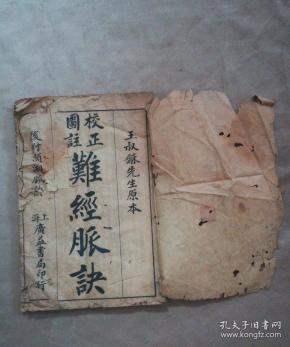 王叔龢先生原本
校正
圖註
難經脈訣
後附瀕湖脈訣
上海廣益書局印行
孔夫子旧书网